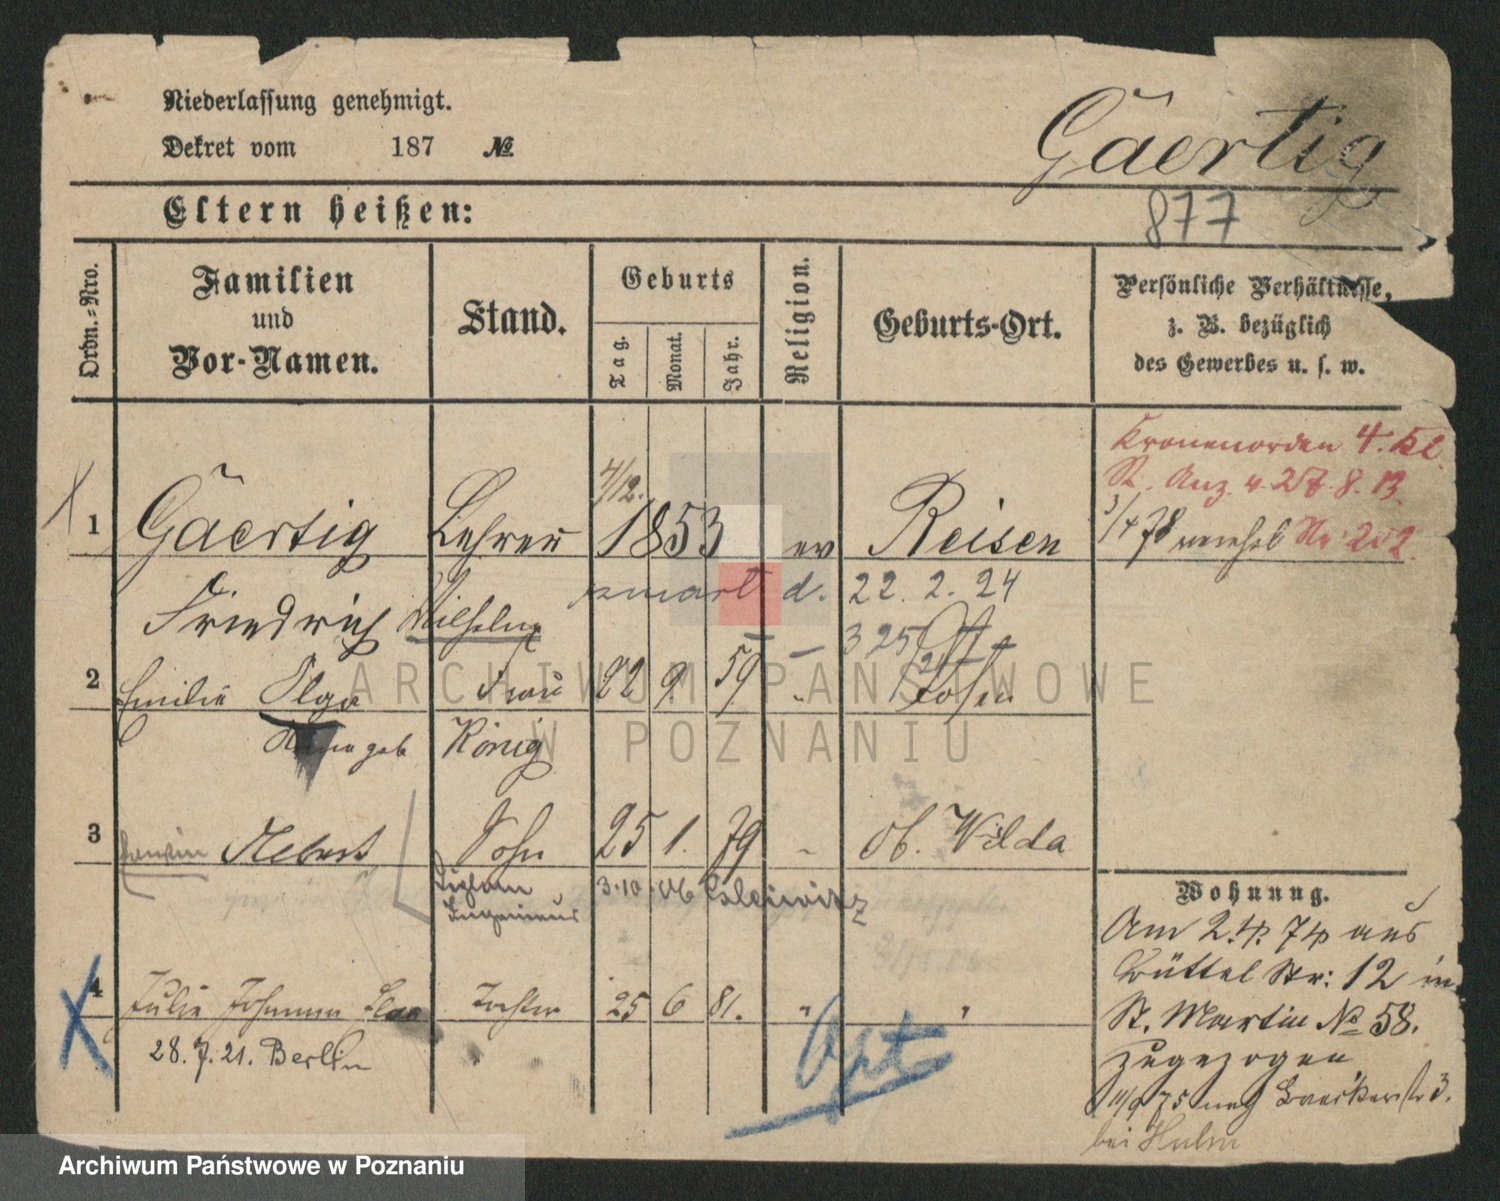 Niederlassung genehmigt.
Dekret vom 187 №
Gäertig
877
Eltern heißen:
Ordn.-Nro.
Familien und Vor-Namen.
Stand.
Geburts
Tag.
Monat.
Jahr.
Religion.
Geburts-Ort.
Persönliche Verhältnisse,
z. B. bezüglich
des Gewerbes u. s. w.
Kronenorden 4. Kl.
St. Anz. v. 27. 8. 13.
Nr 202.
4/12.
1 Gäertig Lehrer 1853 ev Reisen
3/4 78
Friedrich Wilhelm
d. 22. 2. 24
325
2 Emilie Olga Frau 22 9. 59 Posen
geb König
3 Sohn 25 1. 79 Ob. Wilda
Diplom 3.10.06
Ingenieur
4 Julie Johanna Tochter 25 6 81. " "
28. 7. 21. Berlin
Opt
Wohnung.
Am 2.4. 74 aus
Büttel Str: 12 in
St. Martin № 58.
zugezogen
11/9 75 3.
bei
ARCHIWUM PAŃSTWOWE
W POZNANIU
Archiwum Państwowe w Poznaniu